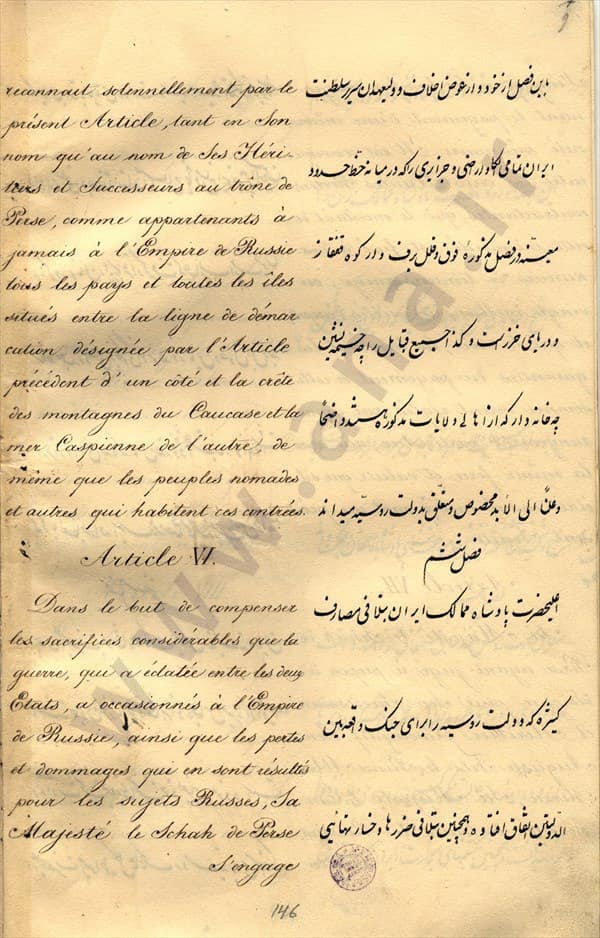 reconnait solennellement par le
présent Article, tant en Son
nom qu'au nom de Ses Héri-
tiers et Successeurs au trône de
Perse, comme appartenants à
jamais à l'Empire de Russie
tous les pays et toutes les îles
situés entre la ligne de démar
cation désignée par l'Article
précédent d'un côté et la crête
des montagnes du Caucase et la
mer Caspienne de l'autre, de
même que les peuples nomades
et autres qui habitent ces contrées.
Article VI.
Dans le but de compenser
les sacrifices considérables que la
guerre, qui a éclatée entre les deux
Etats, a occasionnés à l'Empire
de Russie, ainsi que les pertes
et dommages qui en sont résultés
pour les sujets Russes, Sa
Majesté le Schah de Perse
S'engage
باین فصل از خود و از عوض اخلاف و ولیعهدان سریر سلطنت
ایران تمامی الکا و اراضی و جزایری را که در میانه خط حدود
معینه در فصل مذکوره فوق و قلل برف دار کوه قفقاز
و دریای خزر است و کذا جمیع قبایل را چه خیمه نشین
چه خانه دار که از اهالی ولایات مذکوره هستند واضحا
و علنا الی الابد مخصوص و متعلق بدولت روسیه میداند
فصل ششم
اعلیحضرت پادشاه ممالک ایران بتلافی مصارف
کثیره که دولت روسیه را برای جنگ واقعه بین
الدولتین اتفاق افتاده و همچنین بتلافی ضررها و خسارتهائی
146
www.ana.ir